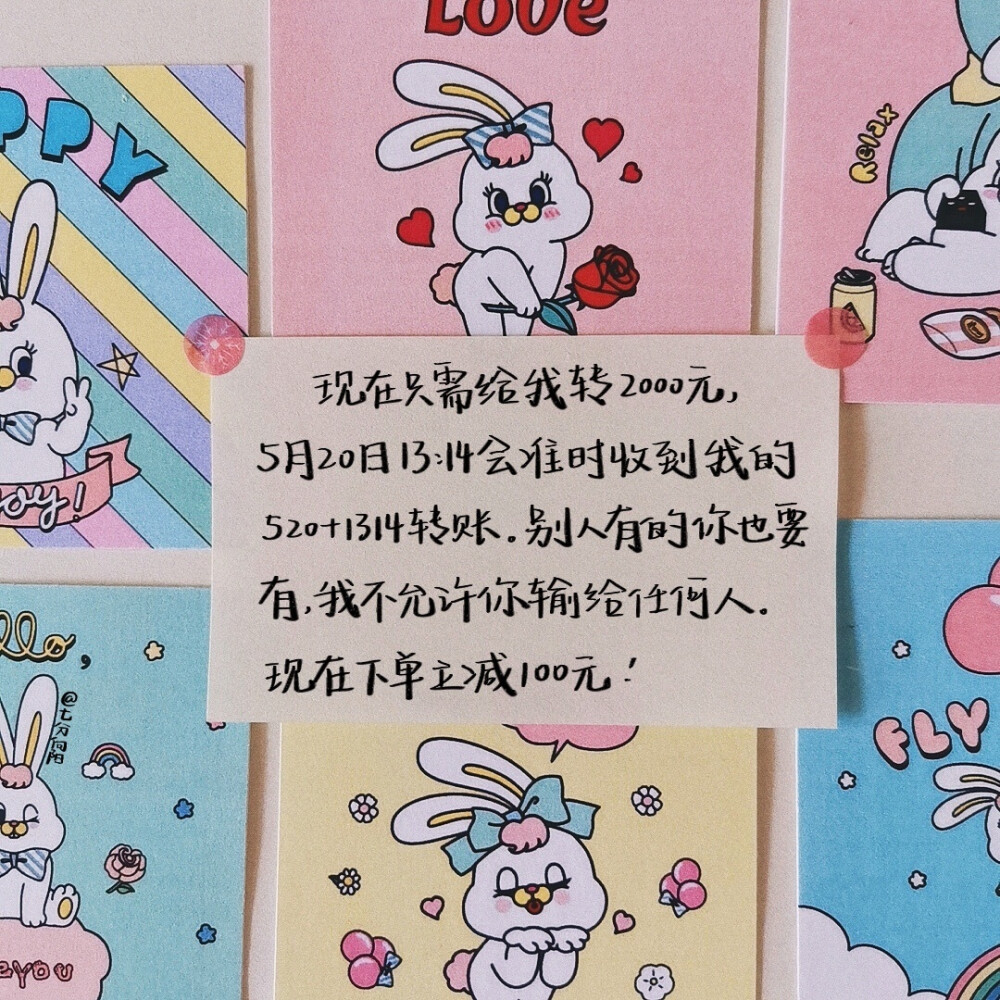 Love
PPY
Relax
现在只需给我转2000元，
5月20日13:14会准时收到我的
520+1314转账。别人有的你也要
有，我不允许你输给任何人。
现在下单立减100元！
@七分向阳
FLY